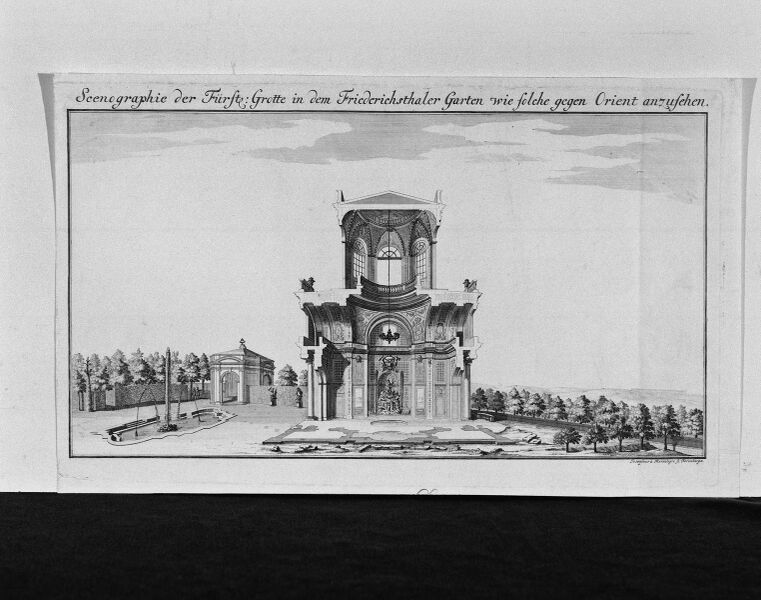 Scenographie der Fürstl: Grotte in dem Friederichsthaler Garten wie solche gegen Orient anzusehen.